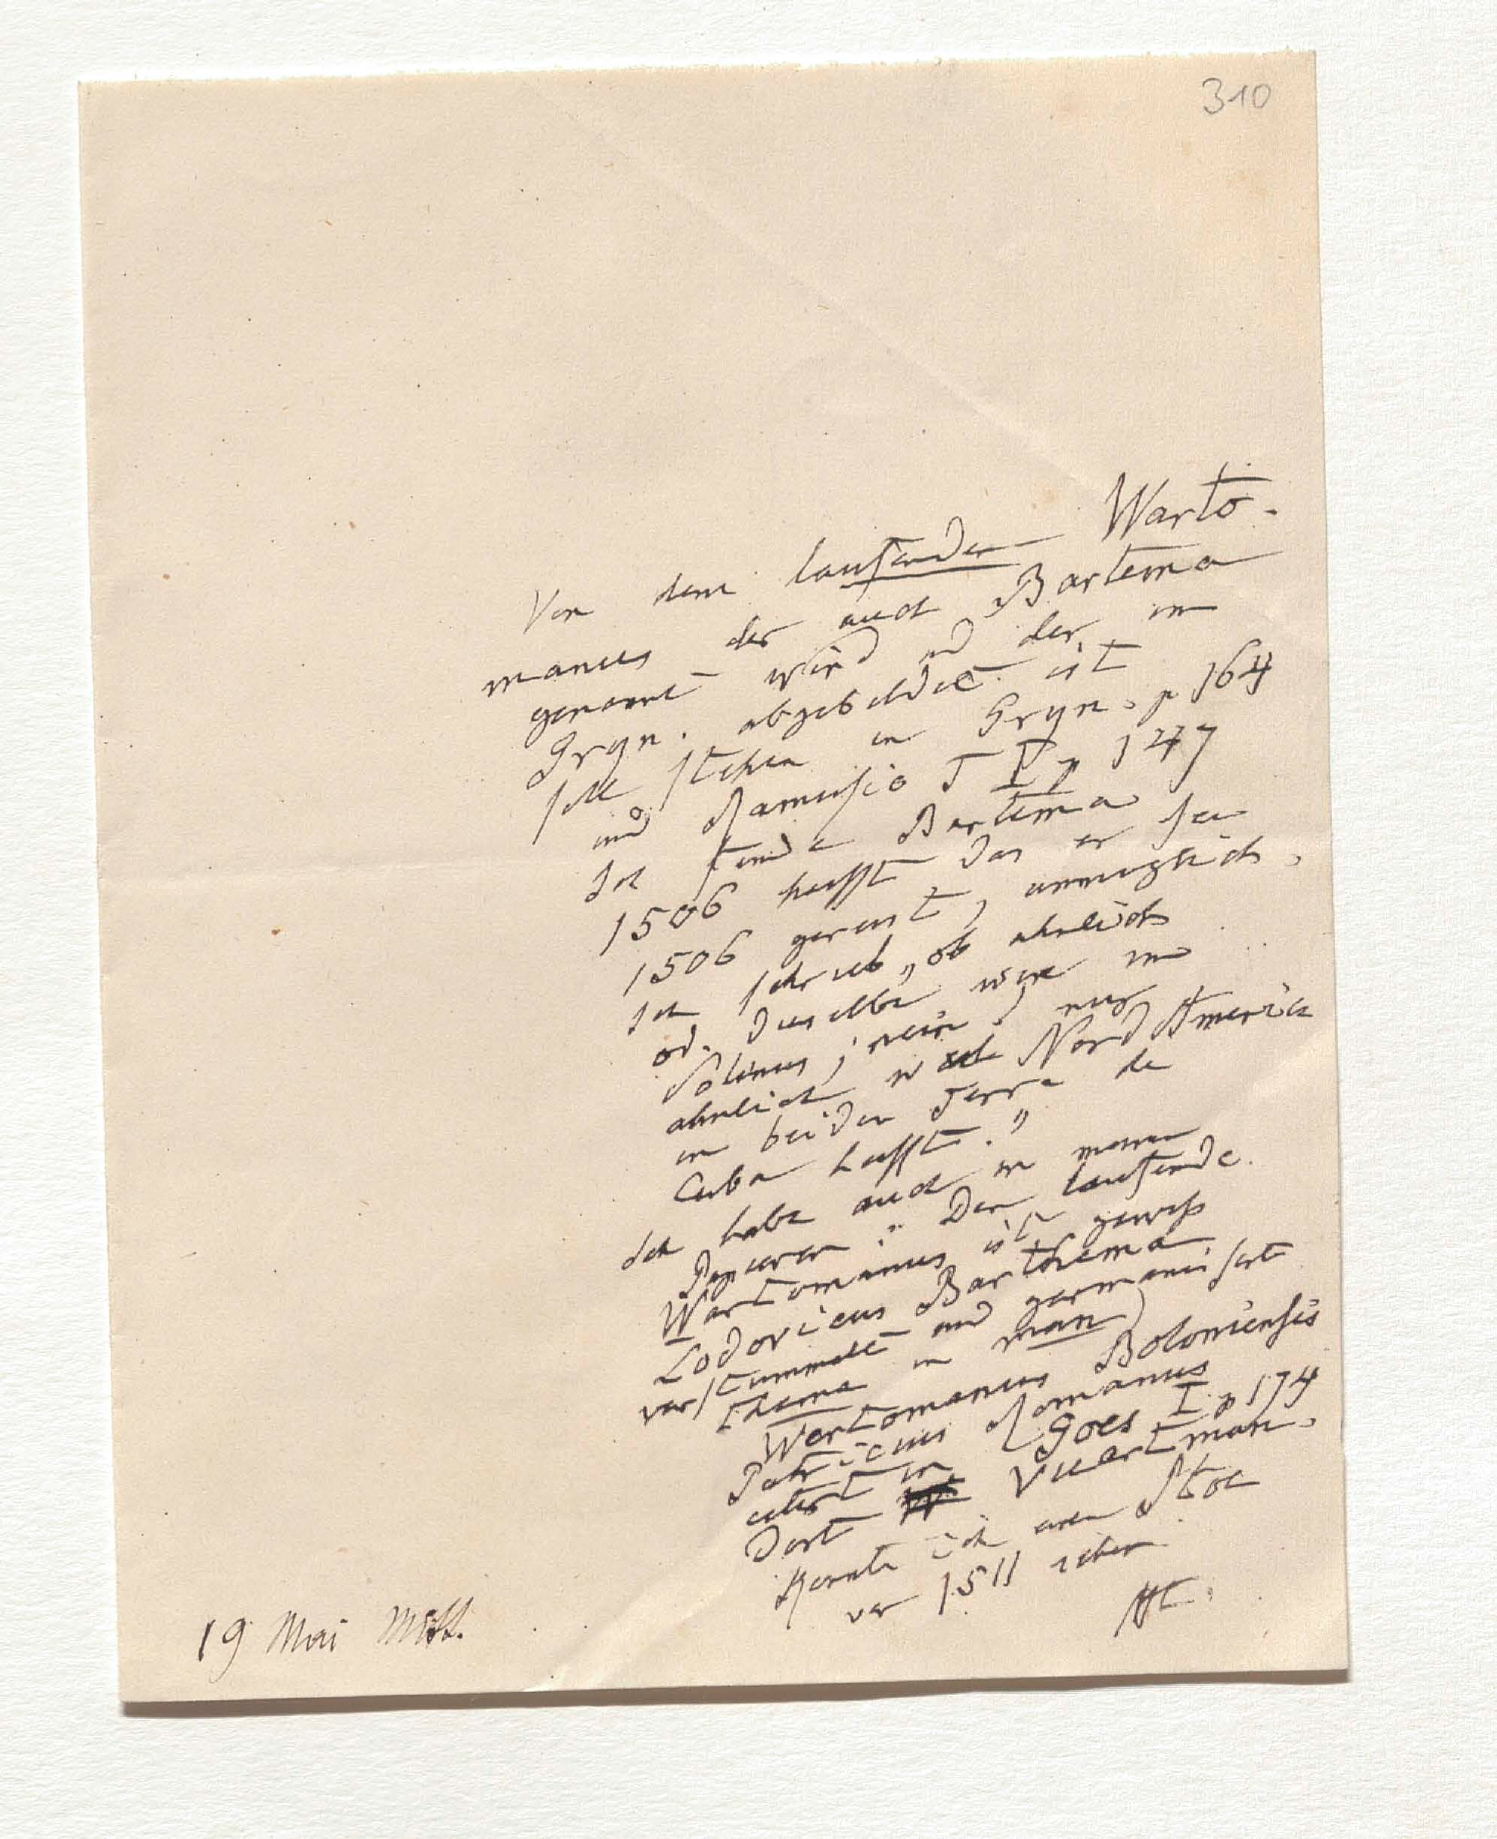 310
Von dem laufenden Warto-
manus der auch Bartema
genannt wird und der im
Gryn. abgebildet ist
soll stehen in Gryn. p 164
und Ramusio T I p 147
Ich finde Bartema
1506 heisst das er sei
1506 gereist, unmöglich.
Ich schrieb „ob ähnlich
od. dieselbe wie im
Solinus; nein, nur
ähnlich weil Nord America
in beiden Terra de
Cuba heisst.”
Ich habe auch in meinen
Papieren „Der laufende
Wartomanus ist gewiss
Lodovicus Barthema
verstümmelt und germanisirt
thema in man)
Wertomanus Boloniensis
Patricius Romanus
citirt in Goes I p 174
dort Vuertman.
Konnte ich einen Stoc
vor 1511 sehen
Ht.
19 Mai Mitt.